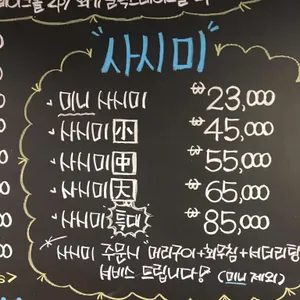 "사시미"
미니 사시미 ₩23,000
사시미 小 ₩45,000
사시미 中 ₩55,000
사시미 大 ₩65,000
사시미 특대 ₩85,000
*사시미 주문시 머리구이+회무침+버터리필
서비스 드립니다! (미니 제외)